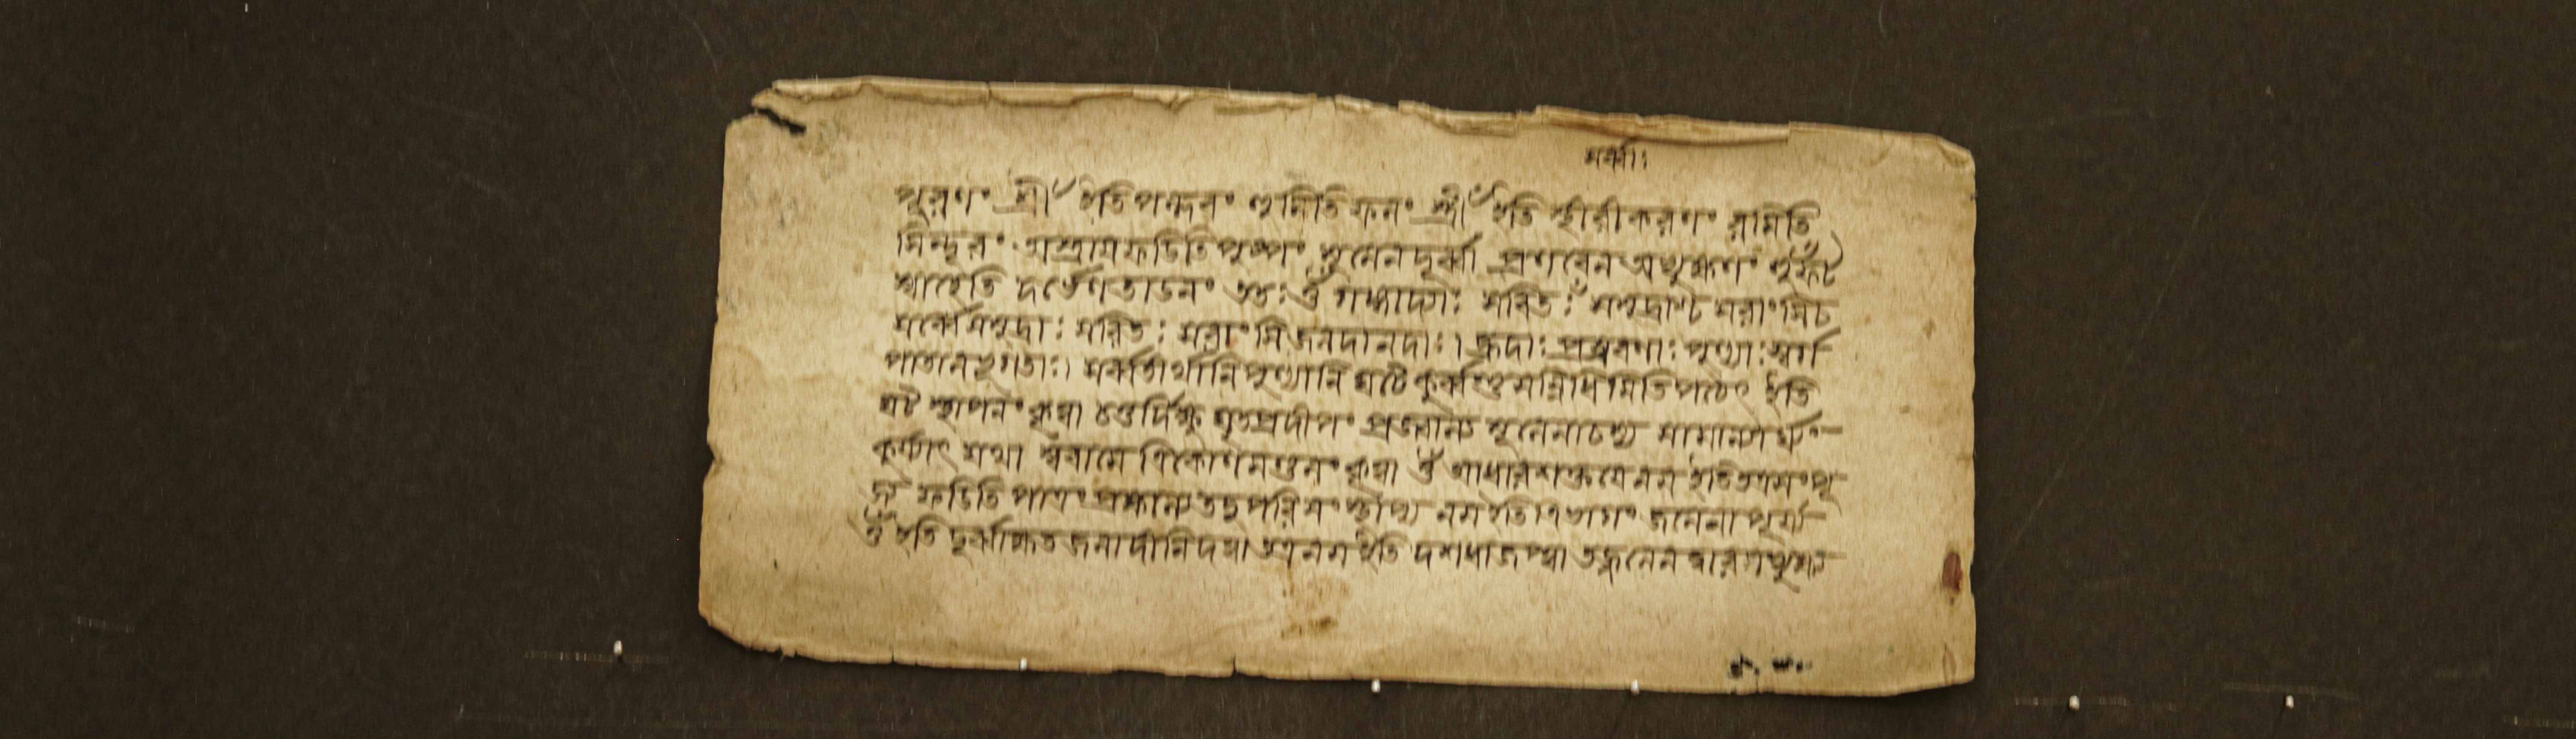 সর্ব্বাঃ
পূরণং শ্রীঁ ইতি পল্লবং হূমিতি ফলং স্ত্রীঁ ইতি স্থীরীকরণং রমিতি
সিন্দূরং অস্ত্রায় ফডিতি পুষ্পং মূলেন দূর্ব্বা প্রণবেন অভ্যুক্ষণং হূঁ ফট্
স্বাহেতি দর্ভেণ তাডনং ততঃ ওঁ গঙ্গাদ্যাঃ সরিতঃ সমুদ্রাশ্চ সরাংসি চ
সর্ব্বে সমুদ্রাঃ সরিতঃ সরাংসি জলদা নদাঃ। হ্রদাঃ প্রস্রবণাঃ পুণ্যাঃ স্বর্গ
পাতালভূগতাঃ। সর্ব্বতীর্থানি পুণ্যানি ঘটে কুর্ব্বন্তু সন্নিধিমিতি পঠেৎ ইতি
ঘট স্থাপনং কৃত্বা চতুর্দিক্ষু ঘৃতপ্রদীপং প্রজ্বাল্য মূলেনাচম্য সামান্যার্ঘ্যং
কুর্য্যাৎ যথা স্ববামে ত্রিকোণমণ্ডলং কৃত্বা ওঁ আধারশক্তয়ে নম ইতি তত্র সংপূ
জ্য ফডিতি পাত্রং প্রক্ষাল্য তদুপরি সংস্থাপ্য নম ইতি ত্রিভাগং জলেনাপূর্য্য
ওঁ ইতি দূর্ব্বাক্ষত জলাদীনি দত্বা তত্র নম ইতি দশধা জপ্ত্বা তজ্জলেন দ্বারমভ্যুক্ষ্য